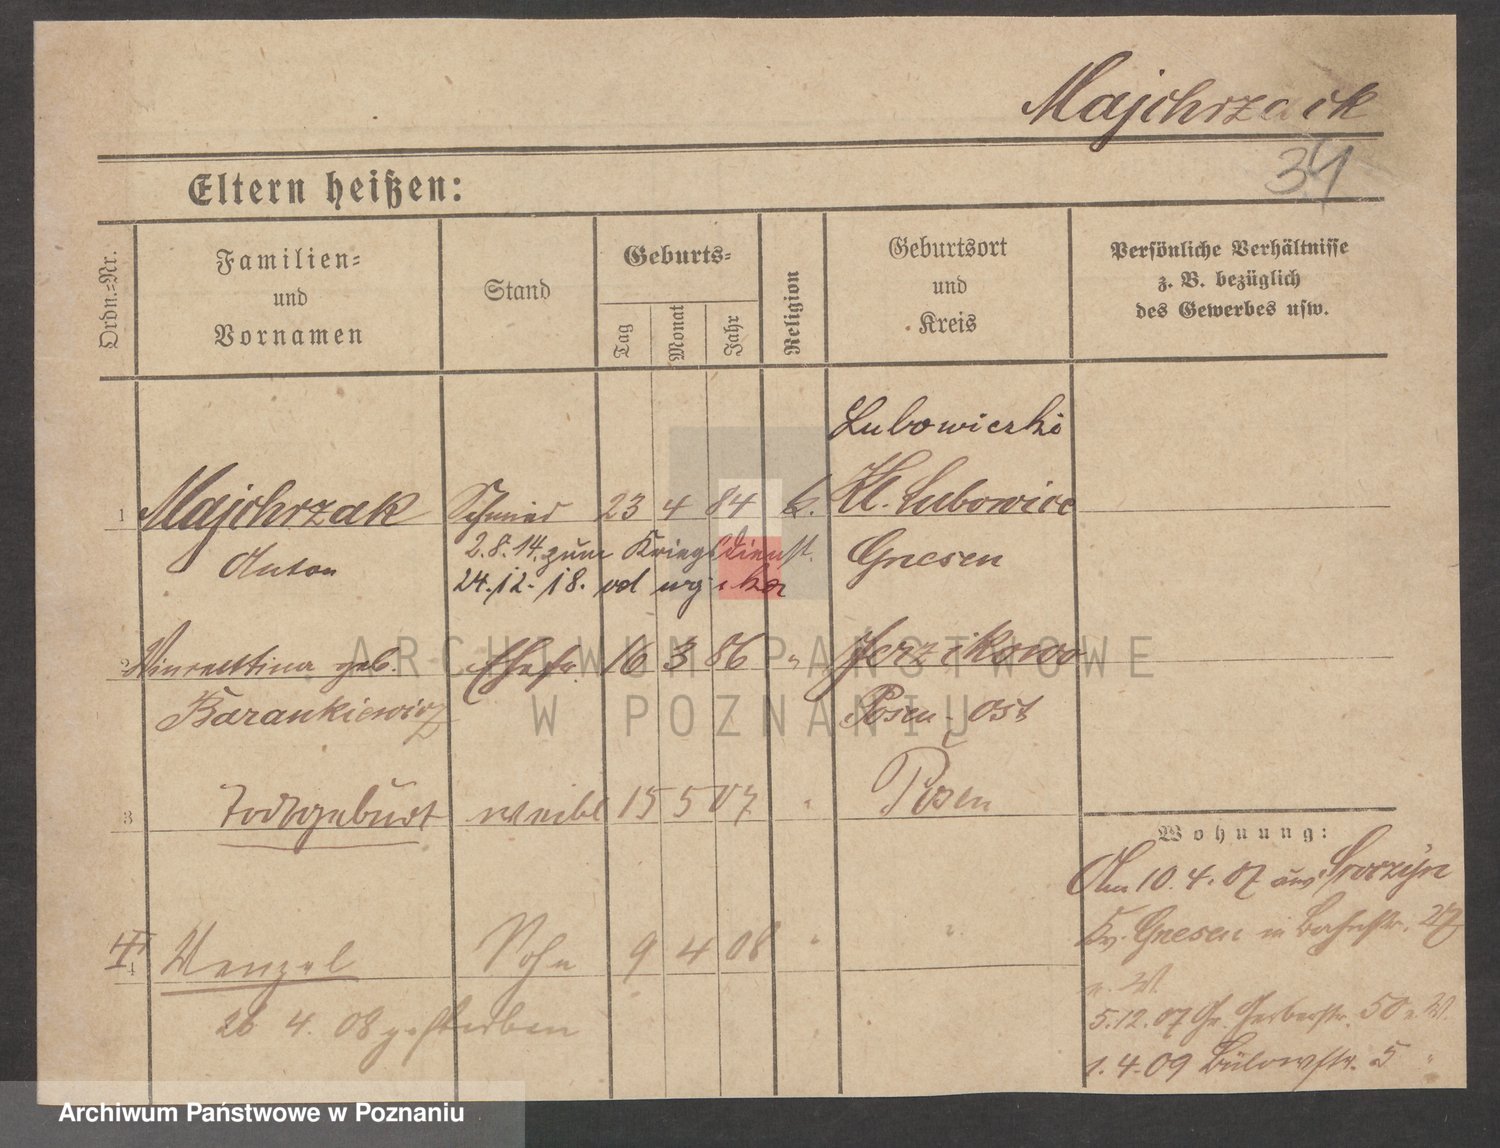 Majchrzack
34
Eltern heißen:
Ordn.=Nr.
Familien=
und
Vornamen
Stand
Geburts=
Tag
Monat
Jahr
Religion
Geburtsort
und
Kreis
Persönliche Verhältnisse
z. B. bezüglich
des Gewerbes usw.
Lubowiczki
1 Majchrzak Schmied 23 4 84 k. Kl. Lubowice
Anton 2.8.14. zum Kriegsdienst Gnesen
24.12.18.
2 geb. Ehefr. 16 3 86 " Jerzikowo
Barankiewicz Posen-Ost
3 Todtgeburt weibl 15 5 07 " Posen
Wohnung:
Am 10.4.07 aus
Kr. Gnesen in
4 Wenzel Sohn 9 4 08 " "
26 4. 08 gestorben
5.12.07 Gr. Gerberstr. 50 b. W.
1.4.09 Bülowstr. 5 "
ARCHIWUM PAŃSTWOWE
W POZNANIU
Archiwum Państwowe w Poznaniu